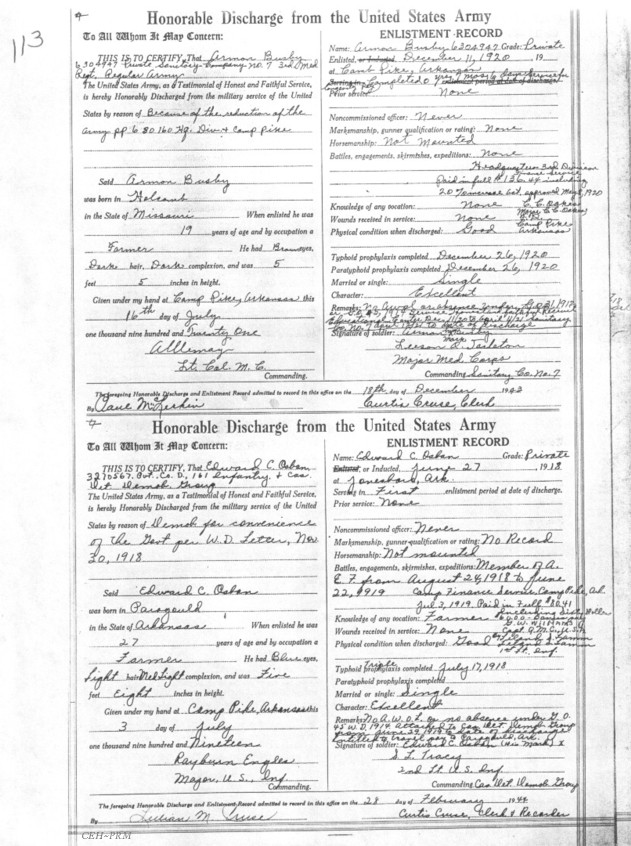 113
Honorable Discharge from the United States Army
To All Whom It May Concern:
THIS IS TO CERTIFY, That Armon Busby
6304947 Private Sanitary Company no. 7 3rd Med
Regt, Regular Army
The United States Army, as a Testimonial of Honest and Faithful Service,
is hereby Honorably Discharged from the military service of the United
States by reason of Because of the reduction of the
Army pp 6 SO 160 Hq. Div 4 Camp Pike
Said Armon Busby
was born in Holcomb
in the State of Missouri When enlisted he was
19 years of age and by occupation a
Farmer He had Brown eyes,
Dark hair, Dark complexion, and was 5
feet 5 inches in height.
Given under my hand at Camp Pike, Arkansas this
16th day of July
one thousand nine hundred and Twenty One
Lt. Col. M. C.
Commanding.
ENLISTMENT RECORD
Name: Armon Busby 6304947 Grade: Private
Enlisted, or Inducted, December 11, 1920 19
at Camp Pike, Arkansas
Serving in Completed 0 yrs 7 mos 6 days enlistment period at date of discharge
Prior service None
Noncommissioned officer: Never
Markmanship, gunner qualification or rating: None
Horsemanship: Not Mounted
Battles, engagements, skirmishes, expeditions: None
Headquarters 3rd Division
Paid in full $136.44 including
1920
Knowledge of any location: None
Wounds received in service: None
Physical condition when discharged: Good
Camp Pike
Arkansas
Typhoid prophylaxis completed December 26, 1920
Paratyphoid prophylaxis completed December 26, 1920
Married or single: Single
Character: Excellent
Remarks: No Awol or absence under G.O. 31, 1912
Co. No. 7 to date of discharge
Signature of soldier: Armon Busby
Major Med. Corps
Commanding Sanitary Co. No. 7
The foregoing Honorable Discharge and Enlistment Record admitted to record in this office on the 18th day of December 1942
By Curtis Cruse, Clerk
Honorable Discharge from the United States Army
To All Whom It May Concern:
THIS IS TO CERTIFY, That Edward C. Osban
3270567. Pvt. Co. D, 161 Infantry, + Cas.
Det Demob Group
The United States Army, as a Testimonial of Honest and Faithful Service,
is hereby Honorably Discharged from the military service of the United
States by reason of Demob for convenience
of the Govt per W. D. Letter, Nov
30, 1918
Said Edward C. Osban
was born in Paragould
in the State of Arkansas When enlisted he was
27 years of age and by occupation a
Farmer He had Blue eyes,
Light hair Med Light complexion, and was Five
feet Eight inches in height.
Given under my hand at Camp Pike, Arkansas this
3 day of July
one thousand nine hundred and Nineteen
Rayburn Engles
Major, U.S., Inf.
Commanding.
ENLISTMENT RECORD
Name: Edward C. Osban Grade: Private
Enlisted, or Inducted, June 27 1918
at Jonesboro, Ark.
Serving in First enlistment period at date of discharge.
Prior service: None
Noncommissioned officer: Never
Markmanship, gunner qualification or rating: No Record
Horsemanship: Not mounted
Battles, engagements, skirmishes, expeditions: Member of A.
E. F. from August 24, 1918 to June
22, 1919 Camp Finance Camp Pike, Ark.
Jul 3, 1919. Paid in Full $80.41
Knowledge of any location: Farmer
Wounds received in service: None
Physical condition when discharged: Good
1st Lt. Inf.
Typhoid Triple prophylaxis completed July 17, 1918
Paratyphoid prophylaxis completed
Married or single: Single
Character: Excellent
Remarks: No A. W. O. L. or no absence under G. O.
45 W. D. 1914. Attached to Cas Det Demob Group
from June 29 1919 to date of discharge
Entitled to travel pay to Paragould, Ark.
Signature of soldier: Edward C. Osban (His Mark) X
S. L. Tracy
2nd Lt. U.S. Inf.
Commanding Cas. Det. Demob Group
The foregoing Honorable Discharge and Enlistment Record admitted to record in this office on the 28 day of February 1944
By Lillian M. Cruse Curtis Cruse, Clerk & Recorder
CEH~PRM